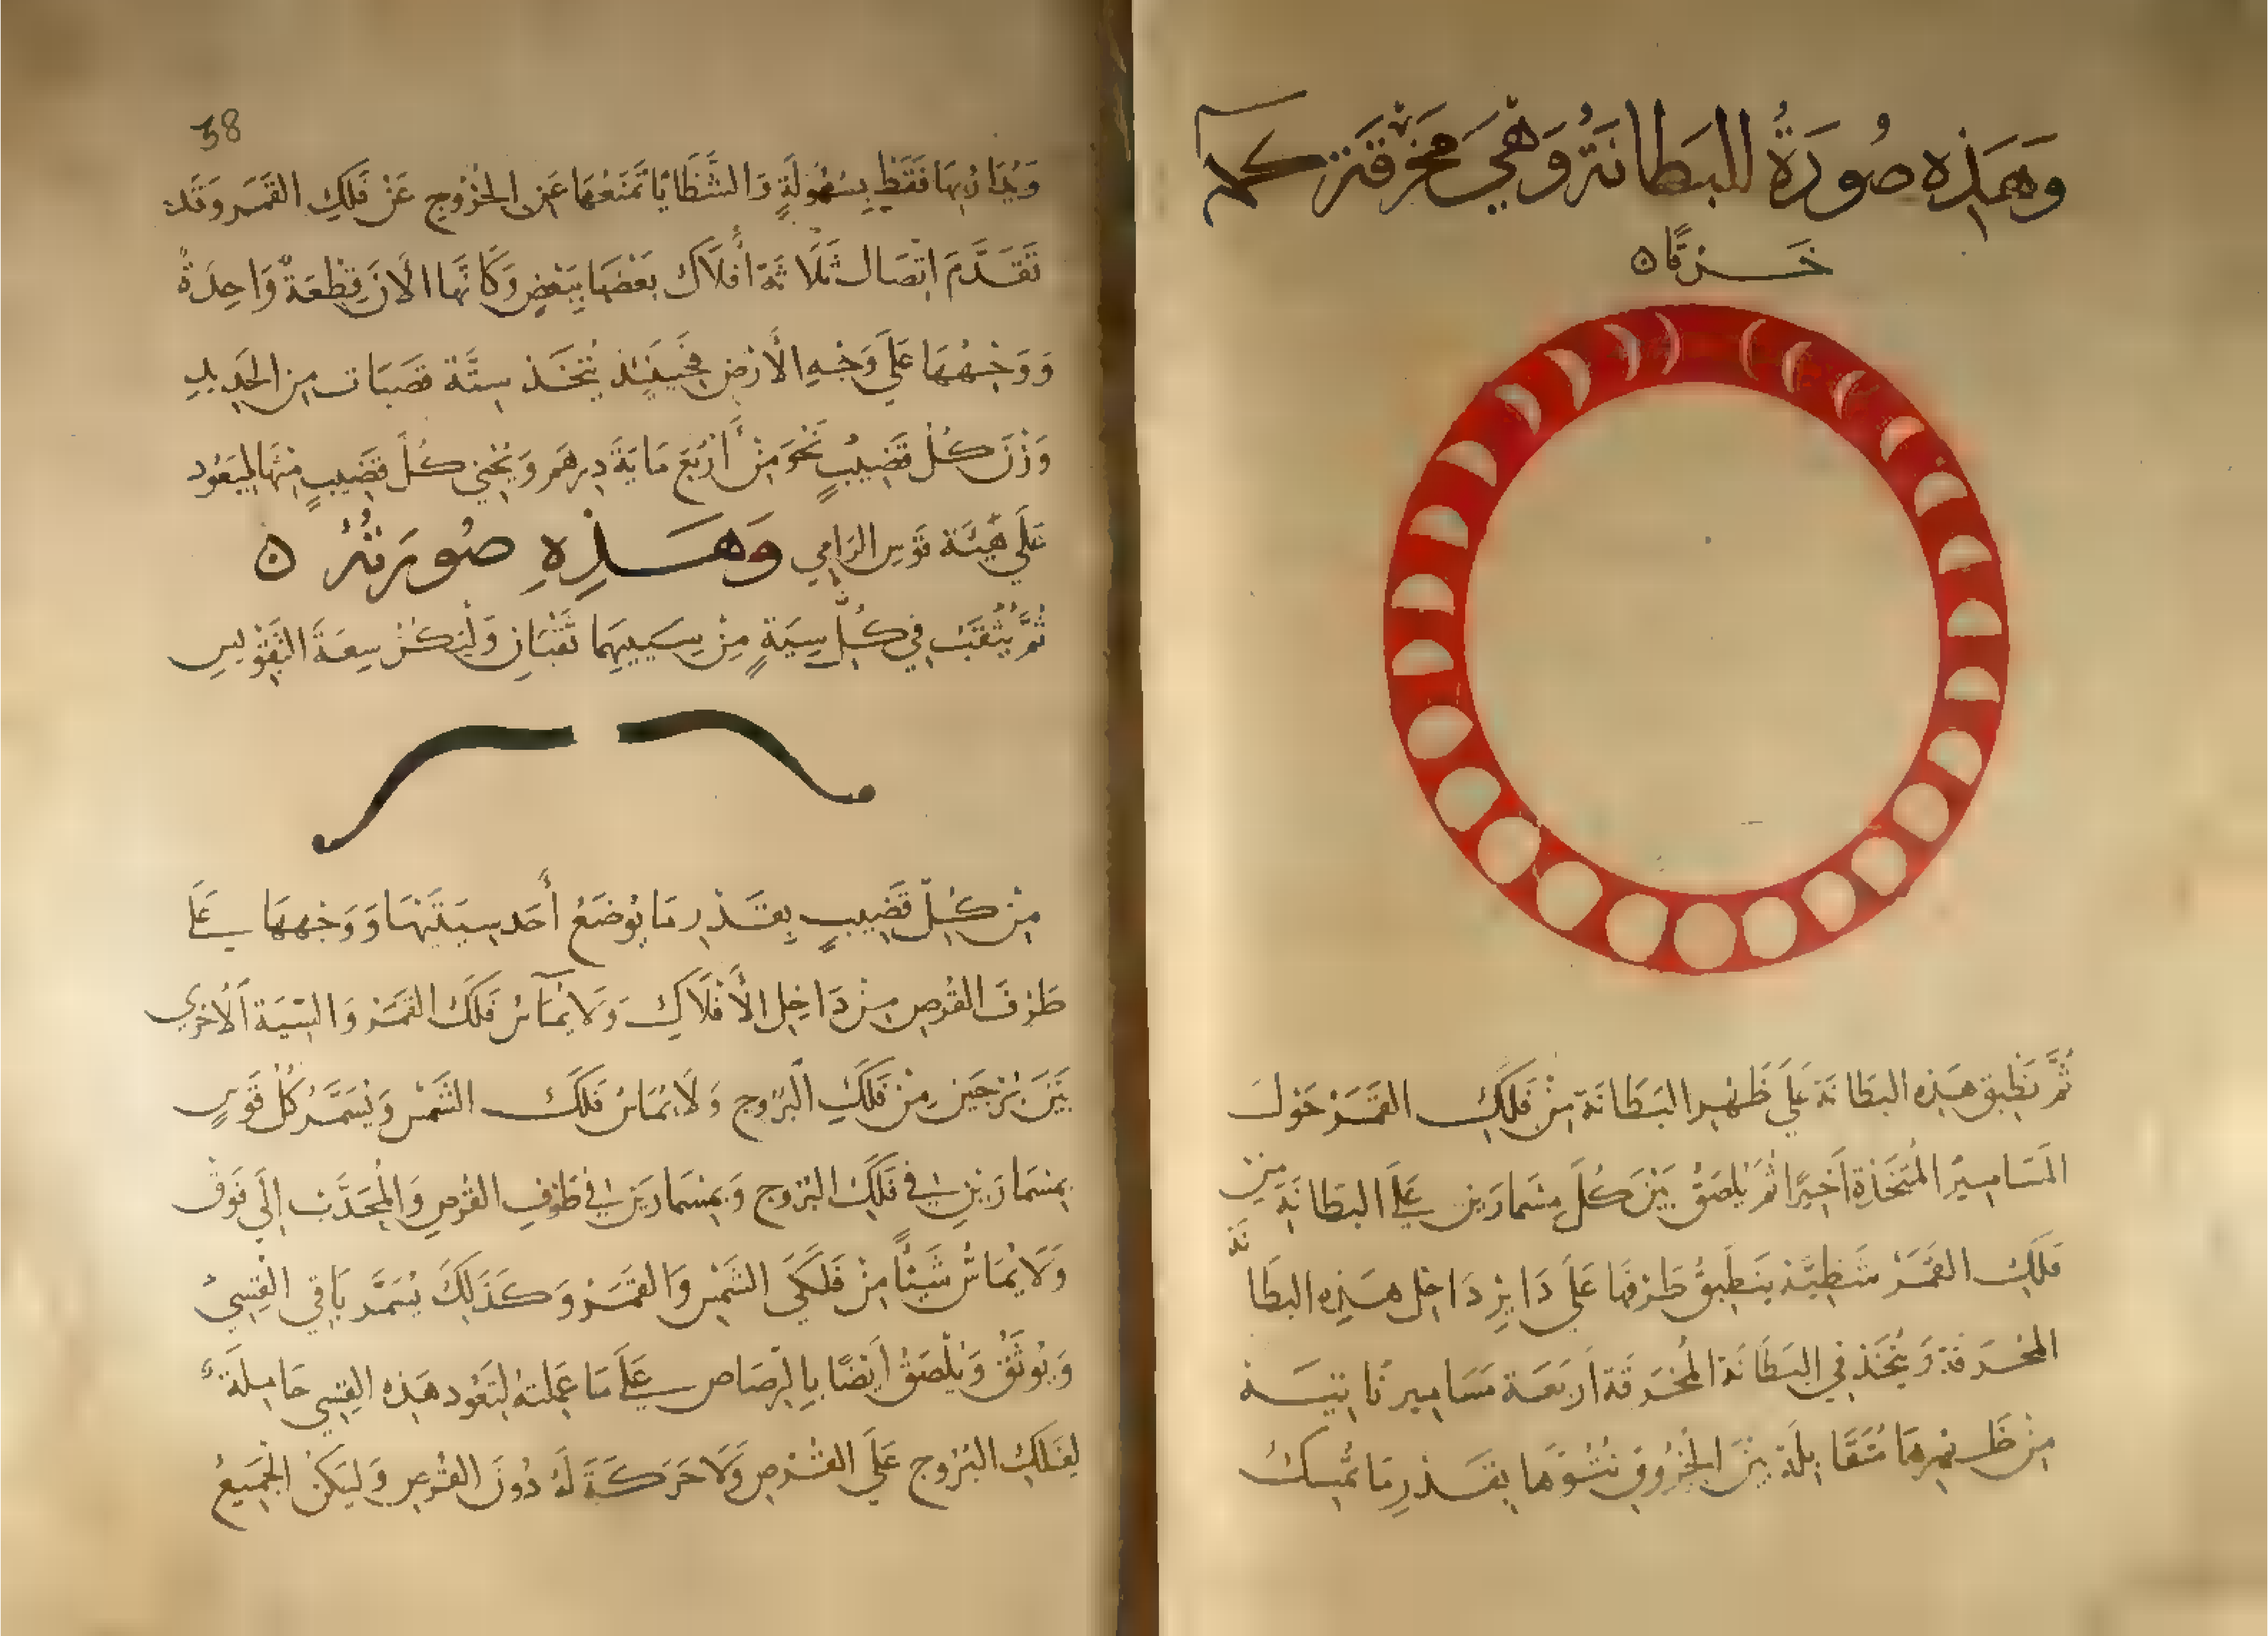 وَهَذِهِ صُورَةُ للبَطَانَةِ وَهْيَ مُخَرَّقَة
خَرقًا ه
ثُمَّ تُطبق هَذِه البَطَانَة عَلَى ظَهْرِ البَطَانَة مِنْ فَلَكِ القَمَرْ حَوْلَ
المَسَامِيرُ المُتَّخَذَة أَخِيرًا ثُمَّ يُلصَقُ بَيْنَ كُلِّ مِسْمَارَيْن عَلَى البَطَانَة مِن
فَلَكِ القَمَرْ شَظِيَّة يَنطَبِقُ طَرفهَا عَلَى دَايِرِ دَاخِل هَذِهِ البَطَا
نَة
المُخَرقَة وَيُتَّخَذ فِي البَطَانَة المُخَرقَة أَرْبَعَة مَسَامِير نَاتِيَة
مِنْ ظَهرهَا مُتَقَابِلَة بَيْنَ الخُرُوقِ نُتُوُّهَا بِقَدْرِ مَا تُمْسِكُ
38
وَيُدَارُ بِهَا فَقَط بِسُهُولَةٍ وَالشَّظَايَا تَمْنَعُهَا عَنِ الخُرُوج عَنْ فَلَكِ القَمَر وَقَد
تَقَدَّمَ اتِّصَال ثَلَاثَة أَفْلَاك بَعْضهَا بِبَعْضٍ وَكَأَنَّهَا الآن قِطْعَةٌ وَاحِدَةٌ
وَوَجْهُهَا عَلَى وَجْهِ الأَرْضِ فَحِينَئِذ يُتَّخَذ سِتَّة قَصَبَات مِن الحَدِيدِ
وَزْنَ كُلّ قَضِيبٍ نَحْوَ مِنْ أَرْبَع مَايَةَ دِرهَم وَيُحْنِي كُلّ قَضِيبٍ مِنْهَا لِيَعُود
عَلَى هَيْئَة قَوْسِ الرَّامِي وَهَذِهِ صُورَتُهُ ه
ثُمَّ يُثْقَبُ فِي كُلِّ سِيَةٍ مِنْ سِيَيتِهِمَا ثَقْبَانِ وَلْيَكُنْ سِعَةَ التَّقْوِيسِ
مِنْ كُلِّ قَضِيبٍ بِقَدْرِ مَا يُوضَعُ أَحَد سِيَتَيْهَا وَوَجْههَا عَلَى
طَرْفَ القُرْصِ مِنْ دَاخِل الأَفْلَاكِ وَلَا يُمَاسّ فَلَكَ القَمَرْ وَالسِّيَة الأُخْرَى
بَيْنَ بُرْجَيْن مِنْ فَلَكِ البُرُوج وَلَا يُمَاسُ فَلَكَ الشَّمْس وَيُسَمَّرُ كُلّ قَوْسٍ
بِمِسْمَارَيْنِ فِي فَلَكِ البُرُوج وَبِمِسْمَارَيْنِ فِي طَرَفِ القُرْصِ وَالمُحَدَّبُ إِلَى فَوْق
وَلَا يُمَاسُّ شَيْئًا مِنْ فَلَكَي الشَّمْسِ وَالقَمَرْ وَكَذَلِكَ يُسَمَّر بَاقِي القِسِيّ
وَيُوثَقُ وَيُلْصَقُ أَيْضًا بِالرَّصَاص عَلَى مَا عَمِلتهُ لِتَعُود هَذِه القِسِي حَامِلَة
لِفَلَكِ البُرُوج عَلَى القُرْص وَلَا حَرَكَةَ لَهُ دُونَ القُرْصِ وَلْيَكُنْ الجَمِيعُ